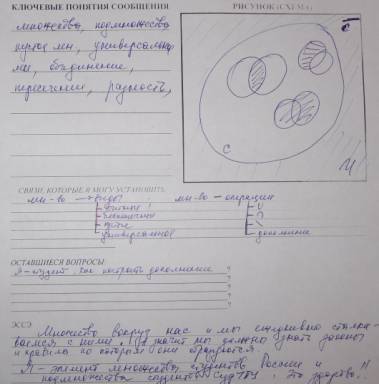 КЛЮЧЕВЫЕ ПОНЯТИЯ СООБЩЕНИЯ
РИСУНОК (СХЕМА)
множества, подмножества
пустое мн, универсальн
мн, объединение,
пересечение, разность,
C
C
U
СВЯЗИ, КОТОРЫЕ Я МОГУ УСТАНОВИТЬ:
мн-во → виды
мн-во – операции
конечные
пустое
универсальное
∪
∩
\
дополнение
ОСТАВШИЕСЯ ВОПРОСЫ
Я - студент, как построить дополнение ?
?
?
?
ЭССЭ
Множество вокруг нас и мы ежедневно сталки-
ваемся с ними. значит мы должны знать законы
и правила по которым они образуются.
Я - элемент множества студентов России и
подмножества студентов Это здорово!